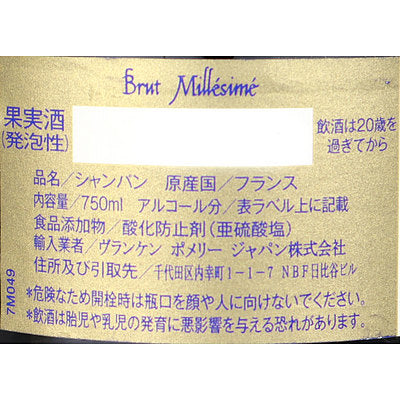 Brut Millésimé
果実酒
(発泡性)
飲酒は20歳を
過ぎてから
品名／シャンパン 原産国／フランス
内容量／750ml アルコール分／表ラベル上に記載
食品添加物／酸化防止剤(亜硫酸塩)
輸入業者／ヴランケン ポメリー ジャパン株式会社
住所及び引取先／千代田区内幸町1-1-7 NBF日比谷ビル
＊危険なため開栓時は瓶口を顔や人に向けないでください。
＊飲酒は胎児や乳児の発育に悪影響を与える恐れがあります。
7M049